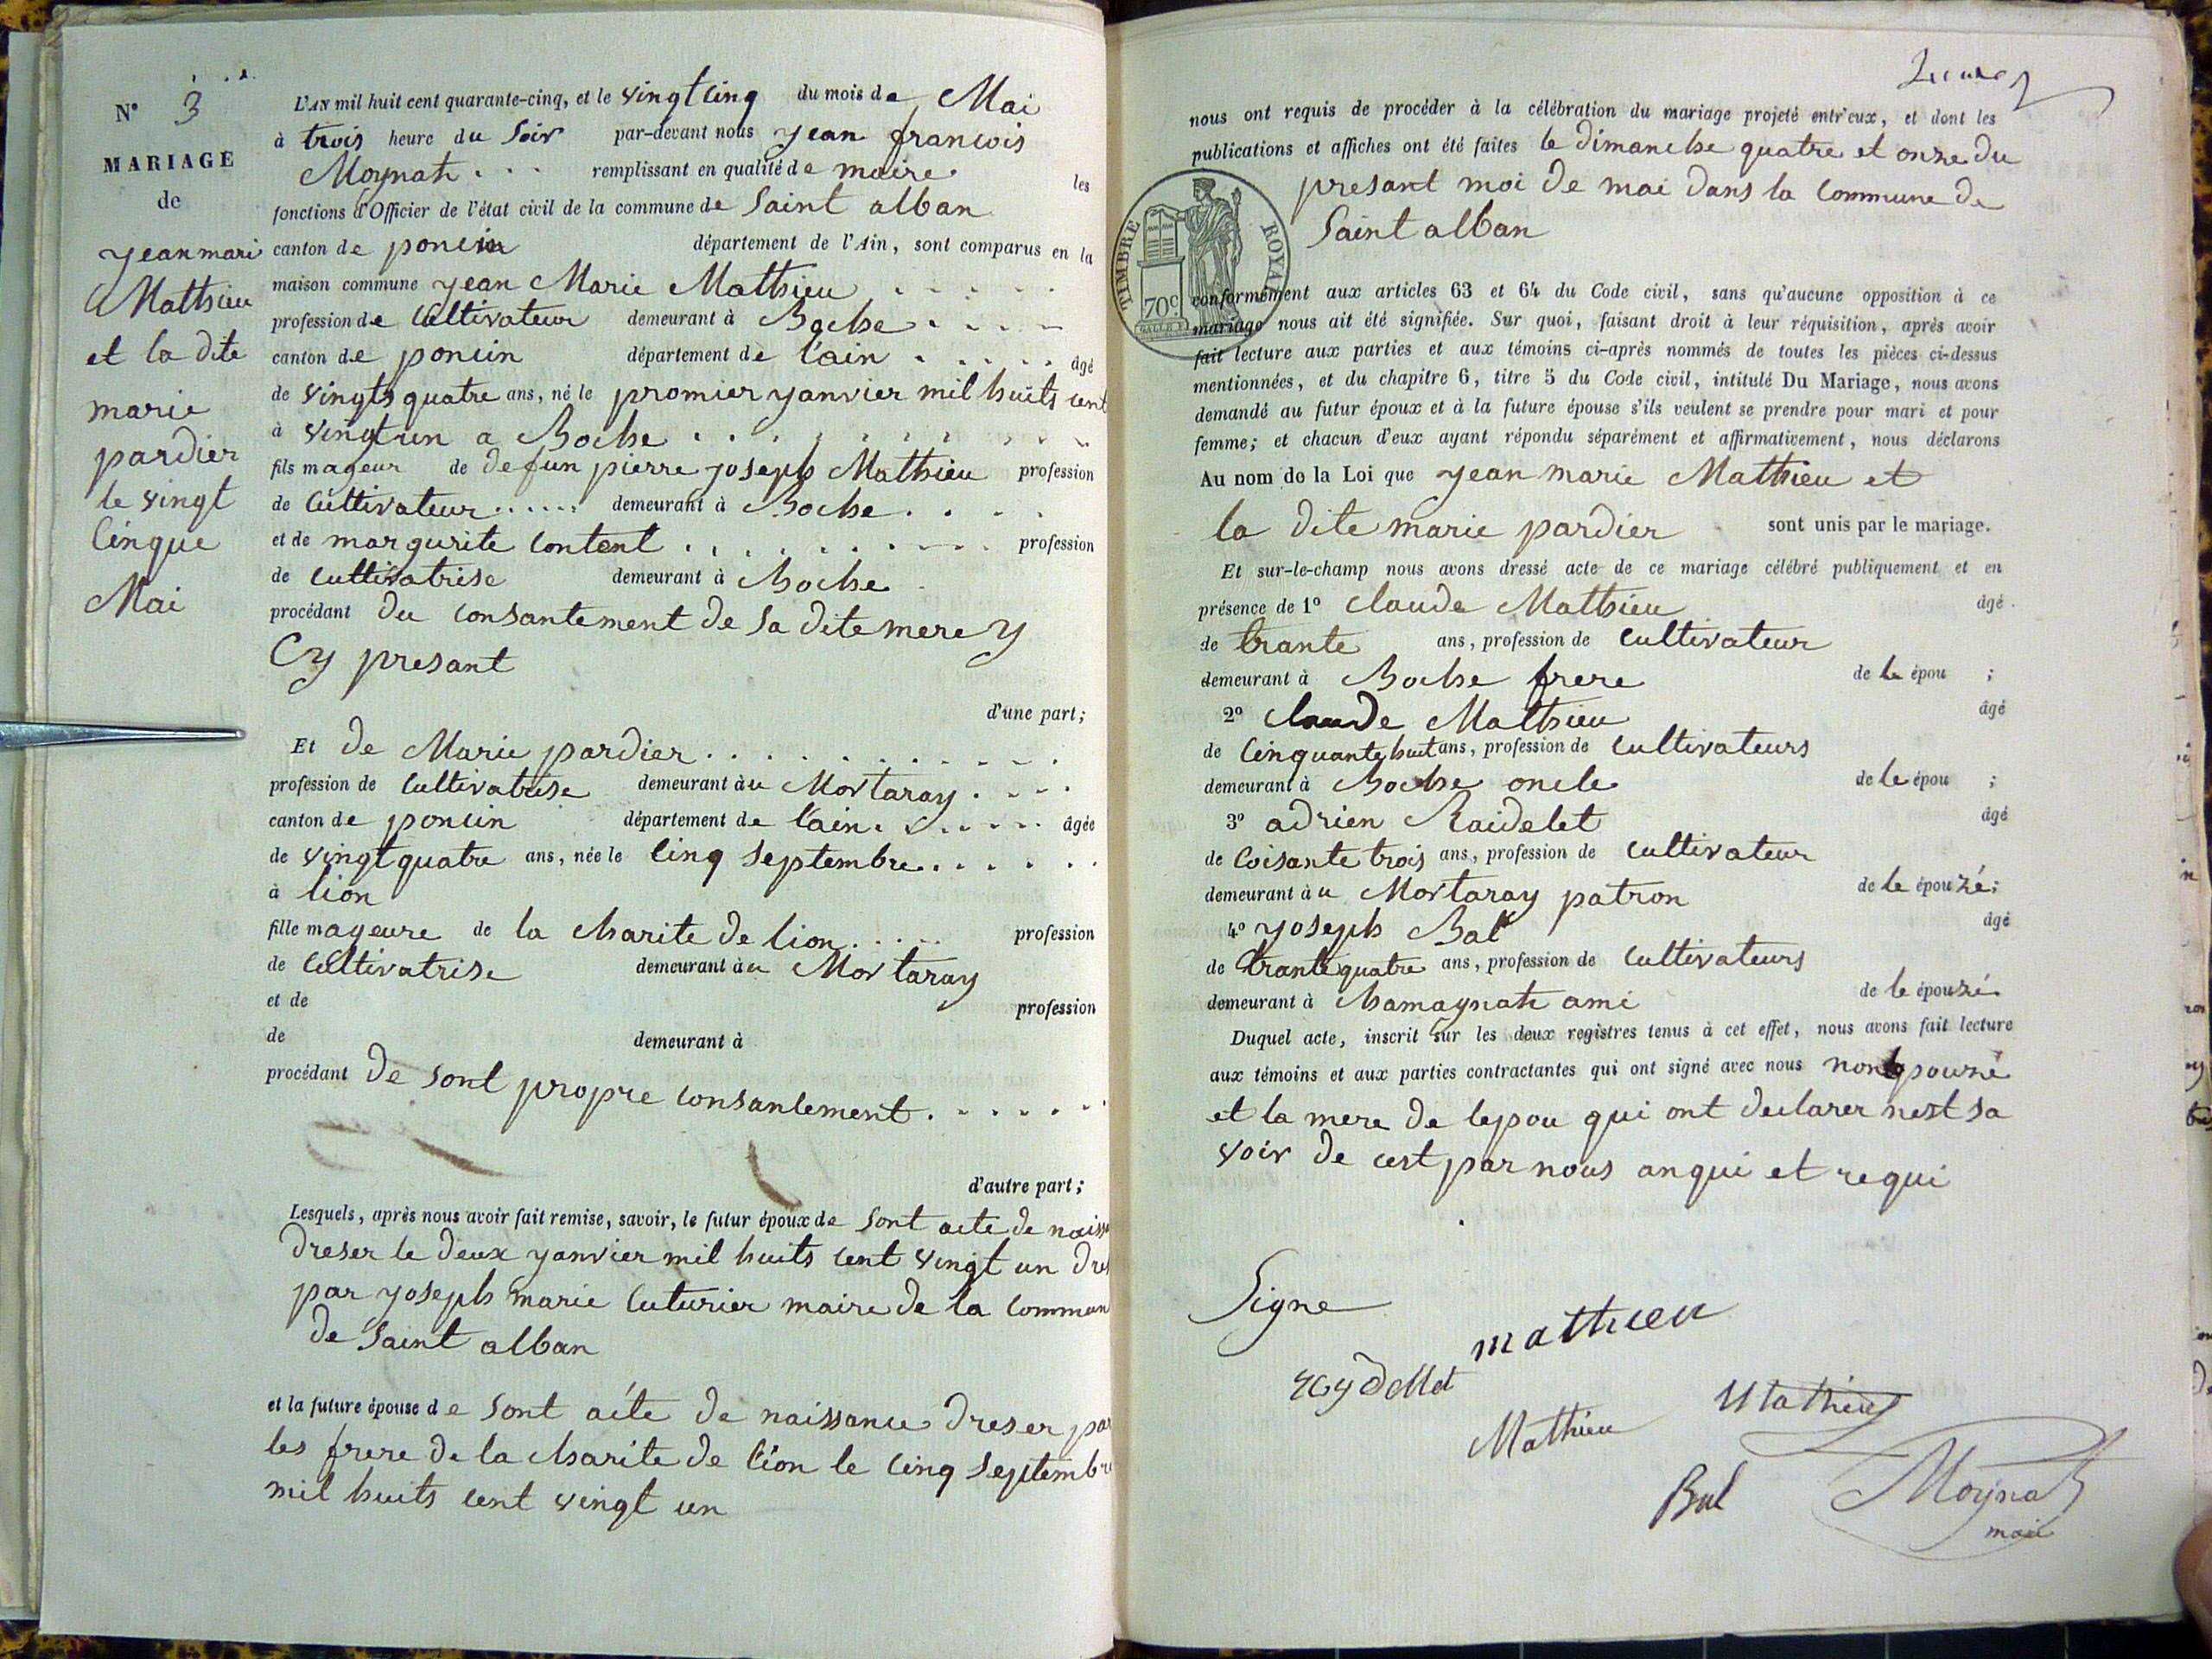 N° 3
MARIAGE
de
yean mari
Mathieu
et la dite
marie
pardier
le vingt
cinque
Mai
L'AN mil huit cent quarante-cinq, et le vingt cinq du mois de Mai
à trois heure du soir par-devant nous yean francois
Moynat . . . remplissant en qualité de maire les
fonctions d'Officier de l'état civil de la commune de Saint alban
canton de poncin département de l'Ain, sont comparus en la
maison commune yean Marie Mathieu . . . . .
profession de cultivateur demeurant à Boche . . . .
canton de poncin département de l'ain . . . . . âgé
de vingts quatre ans, né le promier yanvier mil huits cent
à vingt un a Boche . . . . . . . . .
fils mageur de defun pierre yoseph Mathieu profession
de cultivateur . . . . . demeurant à Boche . . . .
et de margurite content . . . . . . . . profession
de cultivatrise demeurant à Boche
procédant du consantement de sa dite mere y
Cy presant
d'une part;
Et de Marie pardier . . . . . . . . . .
profession de cultivatrise demeurant à u Mortaray . . . .
canton de poncin département de l'ain . . . . . . âgée
de vingt quatre ans, née le cinq septembre . . . . . .
à lion
fille mageure de la charite de lion . . . . . profession
de cultivatrise demeurant à u Mortaray
et de profession
de demeurant à
procédant de sont propre consantement . . . . . .
d'autre part;
Lesquels, après nous avoir fait remise, savoir, le futur époux de sont acte de naiss
dreser le deux yanvier mil huits cent vingt un dres
par yoseph marie cuturier maire de la commun
de saint alban
et la future épouse de sont acte de naissance dreser par
les frere de la charite de lion le cinq septembre
mil huits cent vingt un
nous ont requis de procéder à la célébration du mariage projeté entr'eux, et dont les
publications et affiches ont été faites le dimanche quatre et onze du
presant moi de mai dans la commune de
Saint alban
TIMBRE ROYAL
70c
conformément aux articles 63 et 64 du Code civil, sans qu'aucune opposition à ce
mariage nous ait été signifiée. Sur quoi, faisant droit à leur réquisition, après avoir
fait lecture aux parties et aux témoins ci-après nommés de toutes les pièces ci-dessus
mentionnées, et du chapitre 6, titre 5 du Code civil, intitulé Du Mariage, nous avons
demandé au futur époux et à la future épouse s'ils veulent se prendre pour mari et pour
femme; et chacun d'eux ayant répondu séparément et affirmativement, nous déclarons
Au nom de la Loi que yean marie Mathieu et
la dite marie pardier sont unis par le mariage.
Et sur-le-champ nous avons dressé acte de ce mariage célébré publiquement et en
présence de 1° claude Mathieu âgé
de trante ans, profession de cultivateur
demeurant à Boche frere de le épou ;
2° claude Mathieu âgé
de cinquante huit ans, profession de cultivateurs
demeurant à Boche oncle de le épou ;
3° adrien Raidelet âgé
de coisante trois ans, profession de cultivateur
demeurant à u Mortaray patron de le épouzé;
4° yoseph Bal âgé
de trante quatre ans, profession de cultivateurs
demeurant à chamagnat ami de le épouzé
Duquel acte, inscrit sur les deux registres tenus à cet effet, nous avons fait lecture
aux témoins et aux parties contractantes qui ont signé avec nous non lepouzé
et la mere de lepou qui ont declarer nest sa
voir de cest par nous anqui et requi
Signe
mathieu
Mathieu
Mathieu
Bal
Moynat
maire